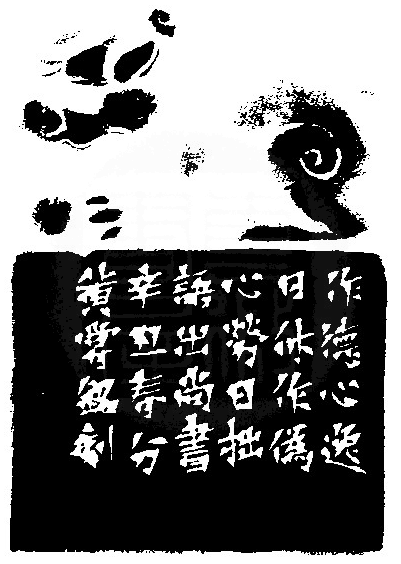 作德心逸
日休作偽
心勞日拙
語出尚書
辛丑春分
黃刻